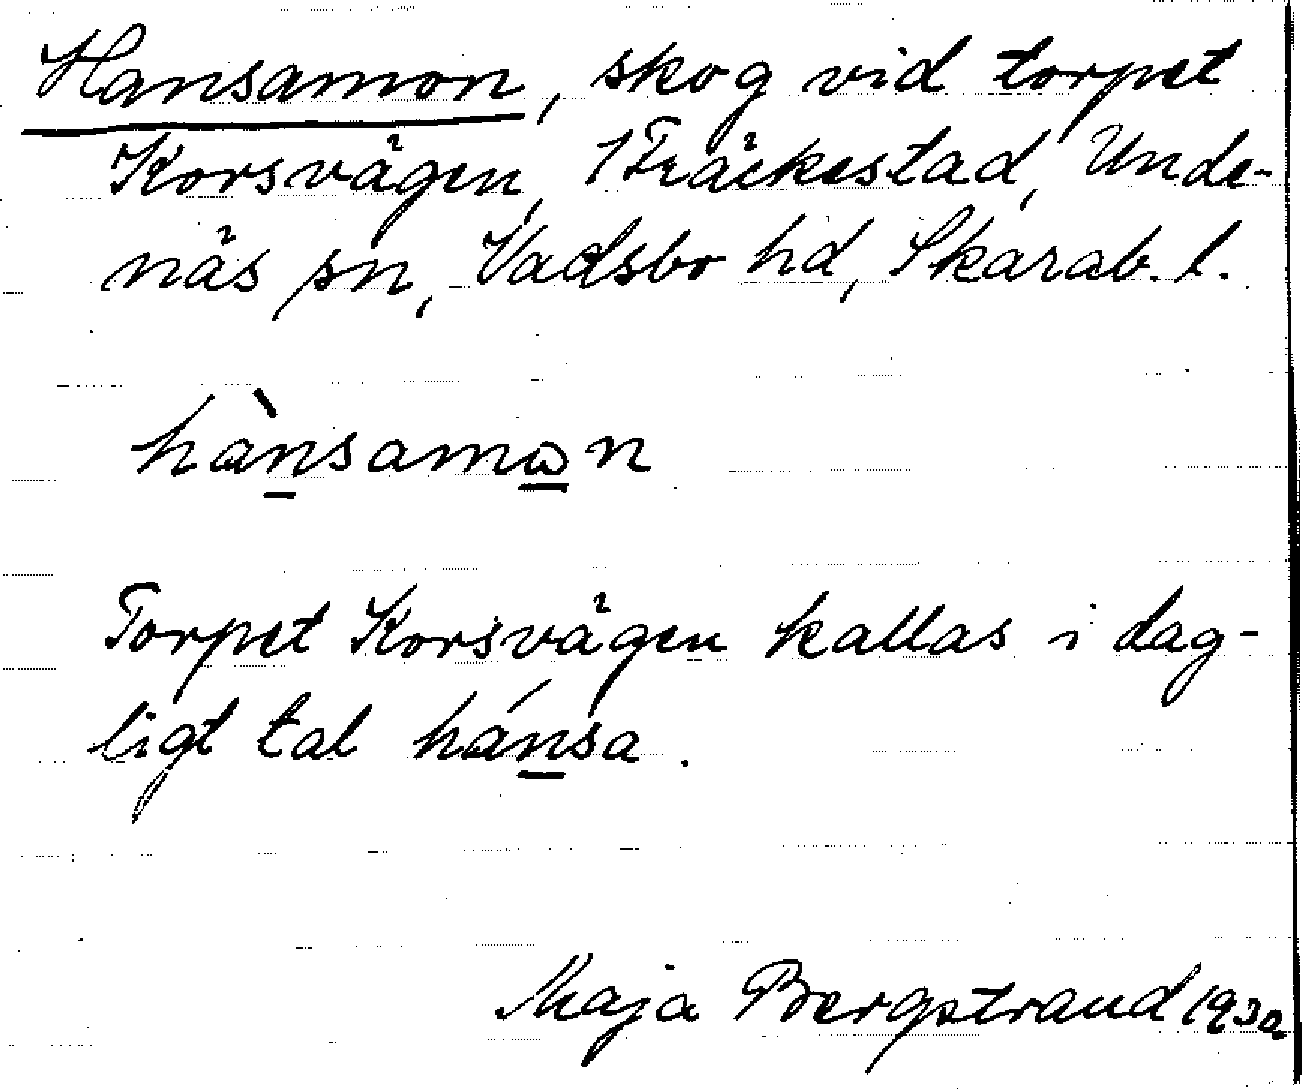 Hansamon, skog vid torpet
Korsvägen, 1 Fräckestad, Unde-
näs sn, Vadsbo hd, Skarab. l.
hànsamon
Torpet Korsvägen kallas i dag-
ligt tal hánsa.
Maja Bergstrand 1932